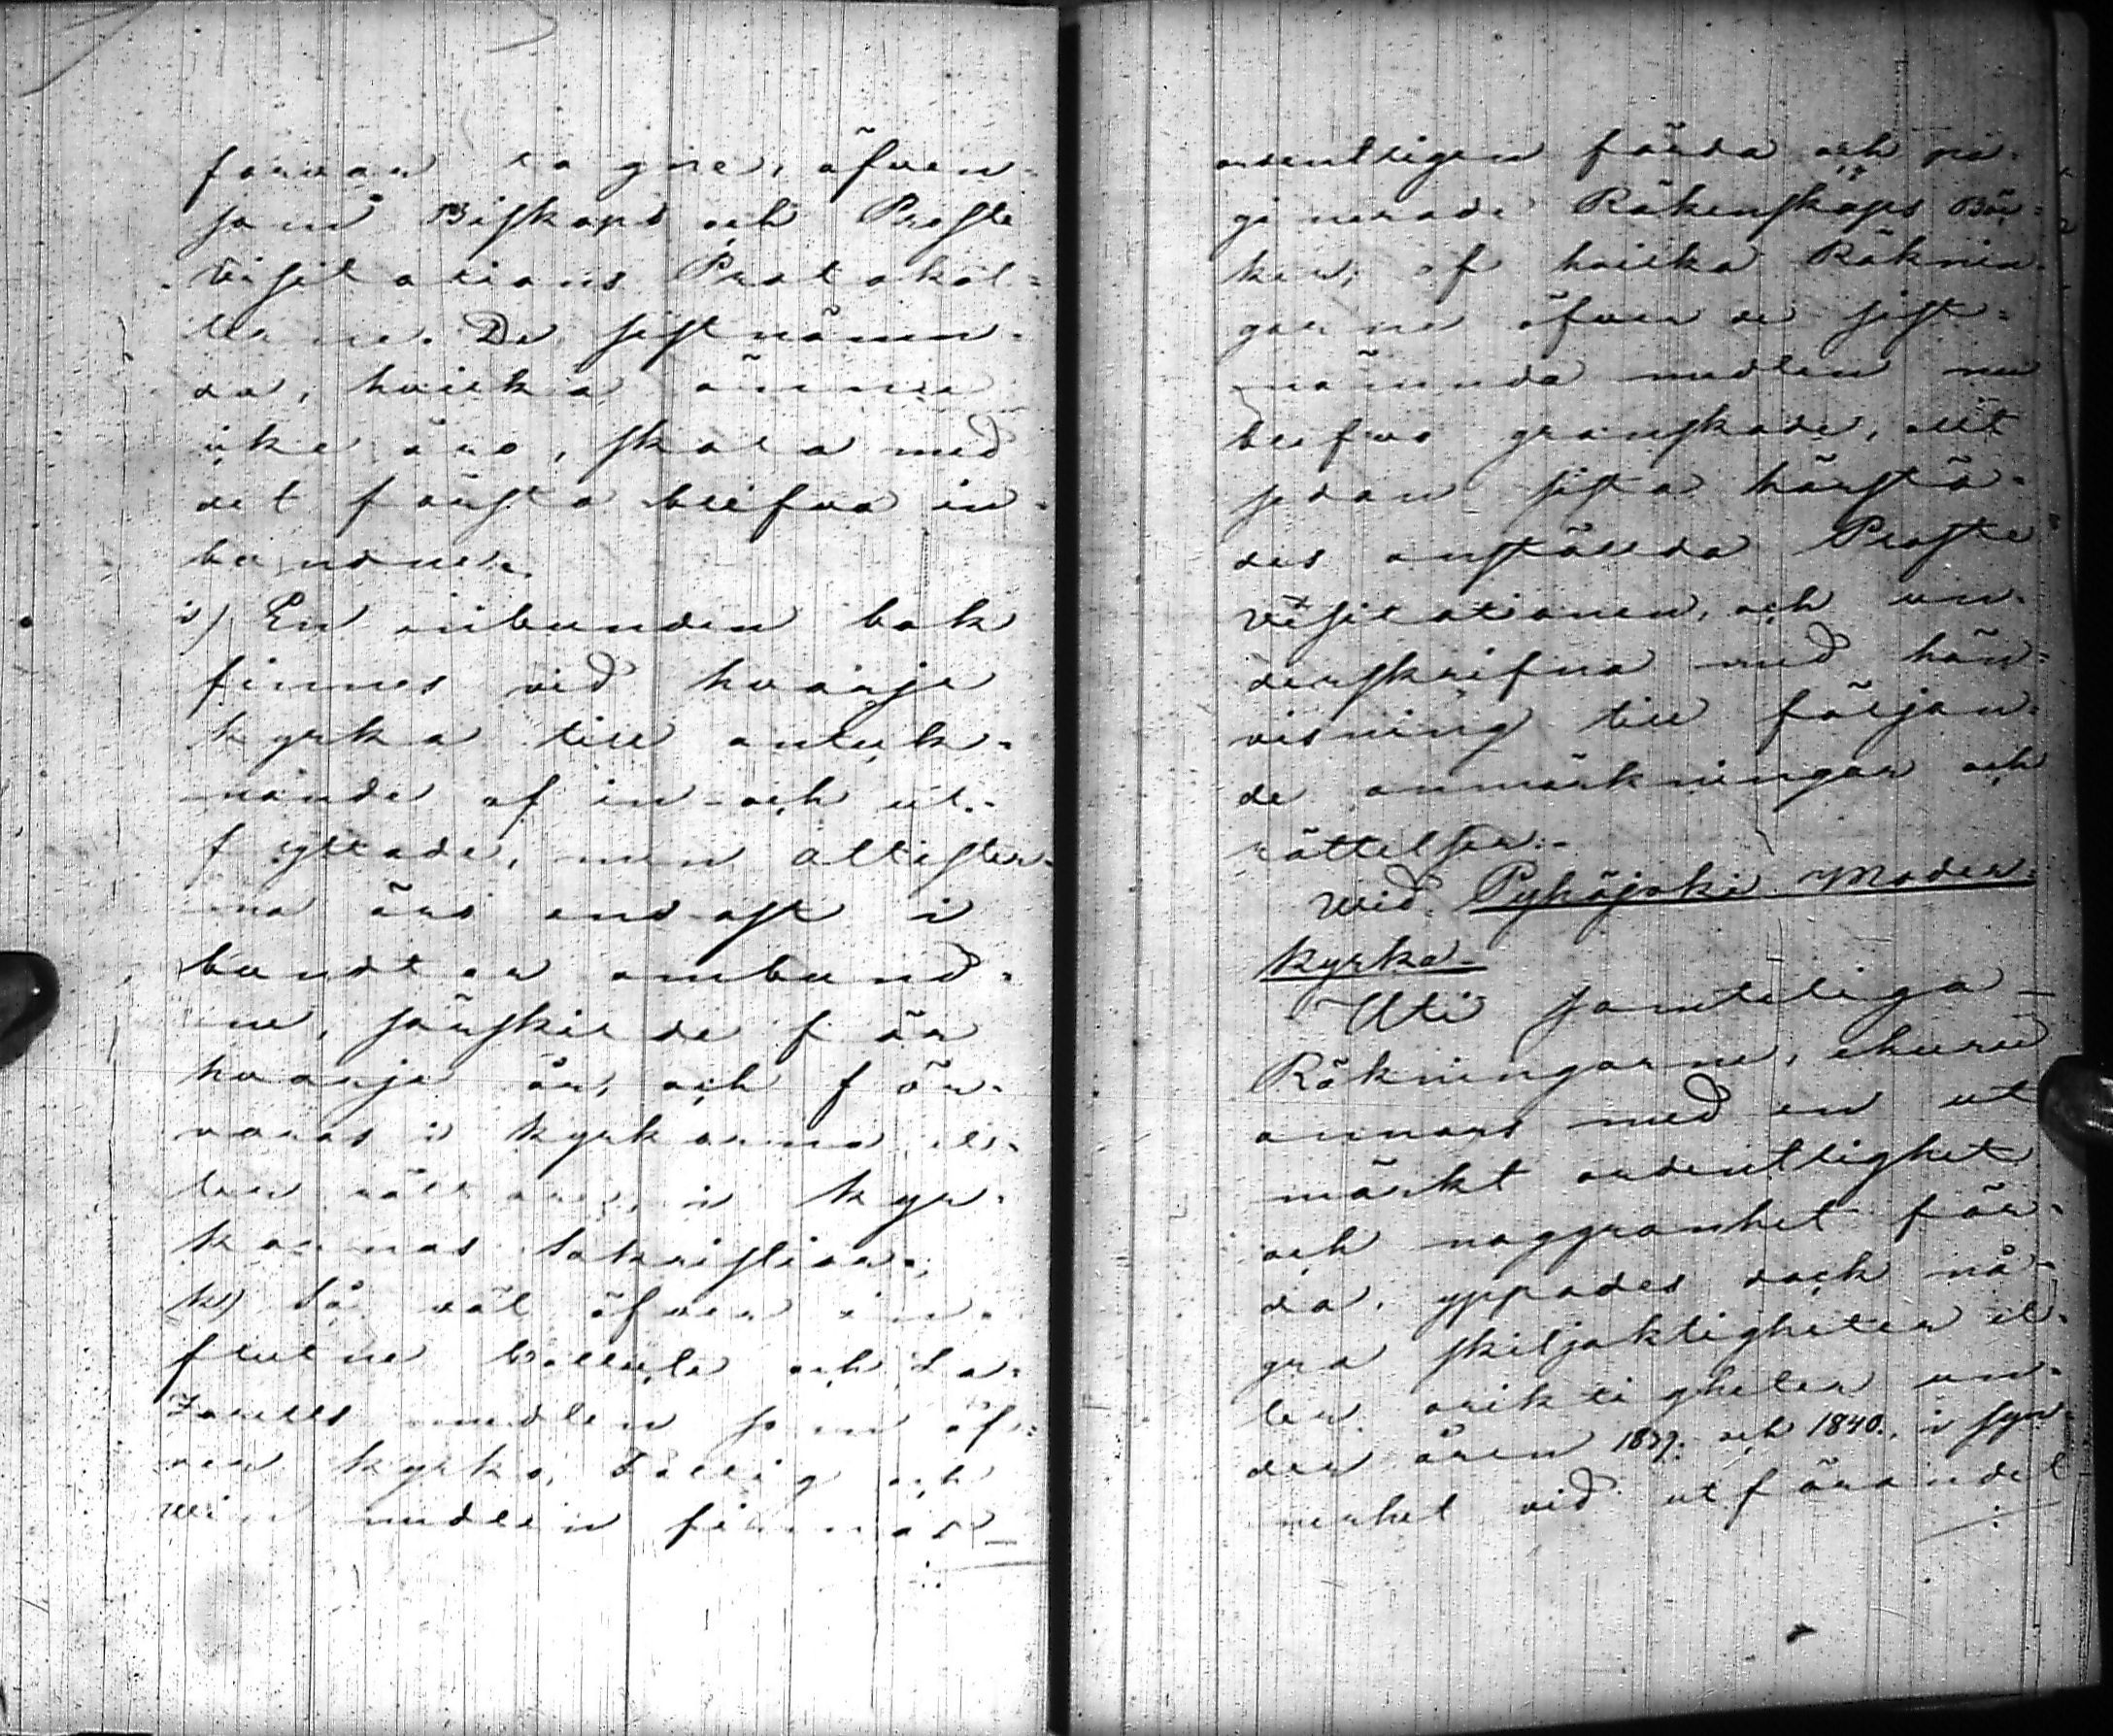 förvar tagne, äfven-
som Biskops och Proste
Visitations Protokol-
lerne. De sistnämn-
da, hvilka ännu
icke äro, skola med
det första blifva in-
bundne.
i) En inbunden bok
finnes vid hvarje
kyrka till anteck-
nande af in- och ut-
flyttade, men attester-
na äro endast i
bundtar ombund-
ne, särskilde för
hvarje år, och för-
varas i kyrkorna el-
ler rättare, i kyr-
kornas Sakristior.
k) Så väl öfver in-
flutne Collecte och La-
zaretts medlen som öf-
ver kyrko, Fattig och
Vin medlen finnas
ordentligen förda och pa-
ginerade Räkenskaps Böc-
ker, af hvilka Räknin-
garne öfver de sist-
nämnda medlen nu
blefvo granskade, allt
sedan sista härstä-
des anställda Proste
Visitationen, och un-
derskrifna med hän-
visning till följan-
de anmärkningar och
rättelser.-
Wid Pyhäjoki Moder-
kyrka-
Uti samteliga
Räkningarne, ehuru
annars med en ut
märkt ordentlighet
och noggranhet för-
da, yppades dock nå-
gra skiljaktigheter el-
ler oriktigheter un-
der åren 1839. och 1840. i syn
nerhet vid utförandet